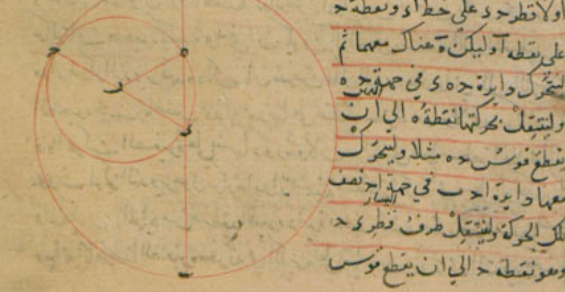 اولا قطر ح د على خط ا د ونقطة ح
على نقطه آ وليكن ه هناك معهما ثم
ليتحرك دايرة ح ه د في جهة ح ه
اليمين
ولينتقل بحركتها نقطة ه الى ان
يقطع قوس ح ه مثلا وليتحرك
معها دايرة ا ح ب في جهة ا ح نصف
اليسار
تلك الحركة ولينتقل طرف قطر د ح
وهو نقطة ح الى ان يقطع قوس
ح
ه
ر
د
ب